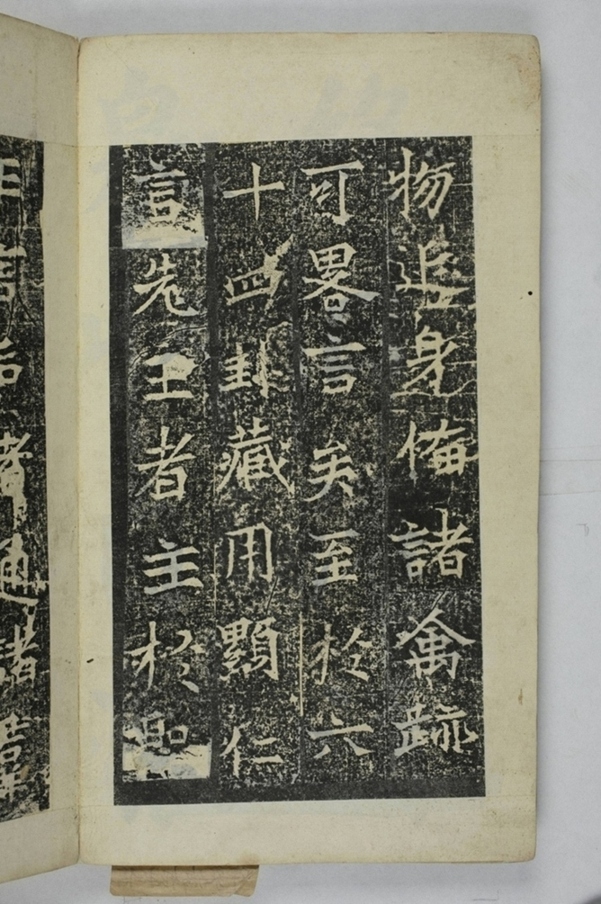 物近身俻諸禽跡
可畧言矣至於六
十四卦藏用顯仁
言先王者主於
者通諸